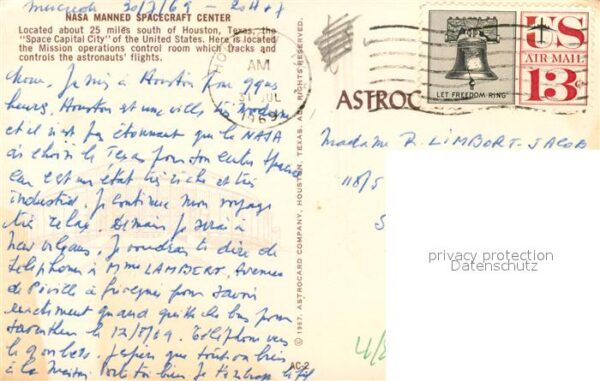 Mercredi 30/7/69 - 20H
NASA MANNED SPACECRAFT CENTER
Located about 25 miles south of Houston, Texas, the
"Space Capital City" of the United States. Here is located
the Mission operations control room which tracks and
controls the astronauts' flights.
Je suis à Houston pour qques
heures. Houston est une ville très moderne
et il n'est pas étonnant que la NASA
ait choisi le Texas pour son centre spatial
car c'est un état très riche et très
industriel. Je continue mon voyage
très relax. Demain je serai à
New Orleans. Je voudrais te dire de
téléphoner à Mme LAMBERT, Avenue
de pour savoir
exactement quand
le 12/8/69. Téléphone vers
J'espère que tout va bien
à la maison
AM
31 JUL
1969
US
AIR MAIL
13c
LET FREEDOM RING
ASTROC
Madame R. LIMBORT-JACOB
118/5
privacy protection
Datenschutz
© 1967, ASTROCARD COMPANY, HOUSTON, TEXAS. ALL RIGHTS RESERVED.
AC-2